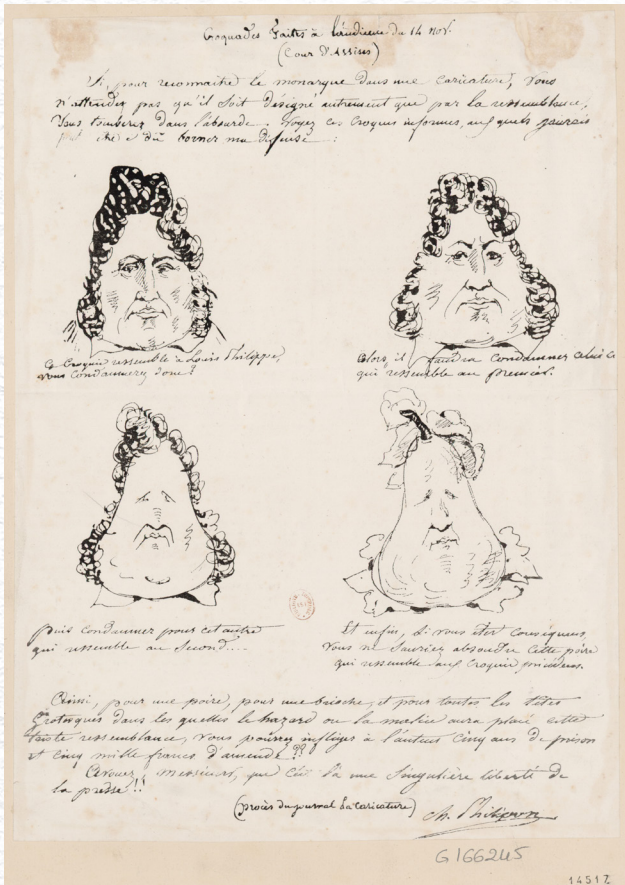 Croquades faites à l'audience du 14 nov.
(Cour d'Assises)
Si, pour reconnaître le monarque dans une caricature, vous
n'attendez pas qu'il soit désigné autrement que par la ressemblance,
vous tomberez dans l'absurde. Voyez ces croquis informes, aux quels j'aurais
peut être dû borner ma défense :
Ce Croquis ressemble à Louis Philippe,
vous condamnerez donc ?
Alors, il faudra condamner celui ci
qui ressemble au premier.
Puis condamner pour cet autre
qui ressemble au second....
Et enfin, si vous êtes conséquens,
Vous ne sauriez absoudre cette poire
qui ressemble aux croquis précédens.
Ainsi, pour une poire, pour une brioche, et pour toutes les têtes
grotesques dans les quelles le hazard ou la malice aura placé cette
triste ressemblance, vous pourrez infliger à l'auteur cinq ans de prison
et cinq mille francs d'amende ??!
Avouez, Messieurs, que c'est là une singulière liberté de
la presse !!
(procès du journal La Caricature)
Ch. Philipon
G 166245
14517